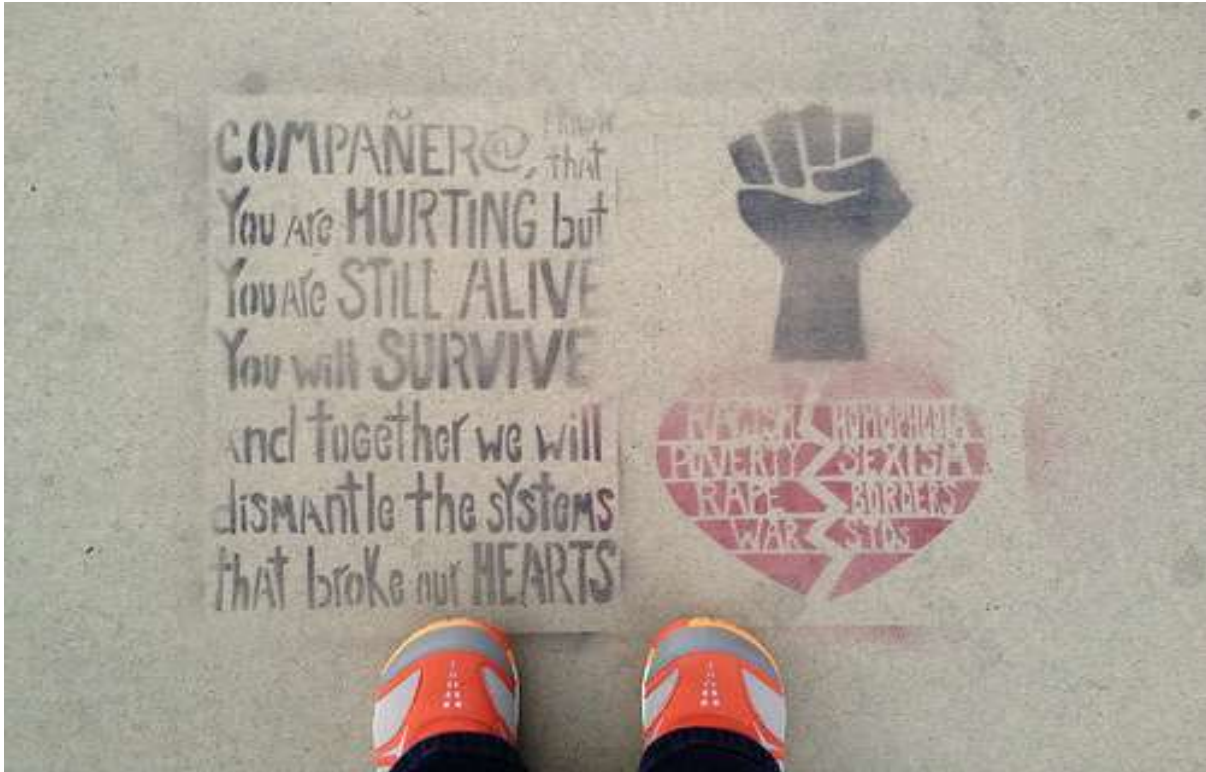 COMPAÑER@, I KNOW
that
You Are HURTING but
You Are STILL ALIVE
You will SURVIVE
And together we will
dismantle the systems
that broke our HEARTS
RACISM HOMOPHOBIA
POVERTY SEXISM
RAPE BORDERS
WAR STDS